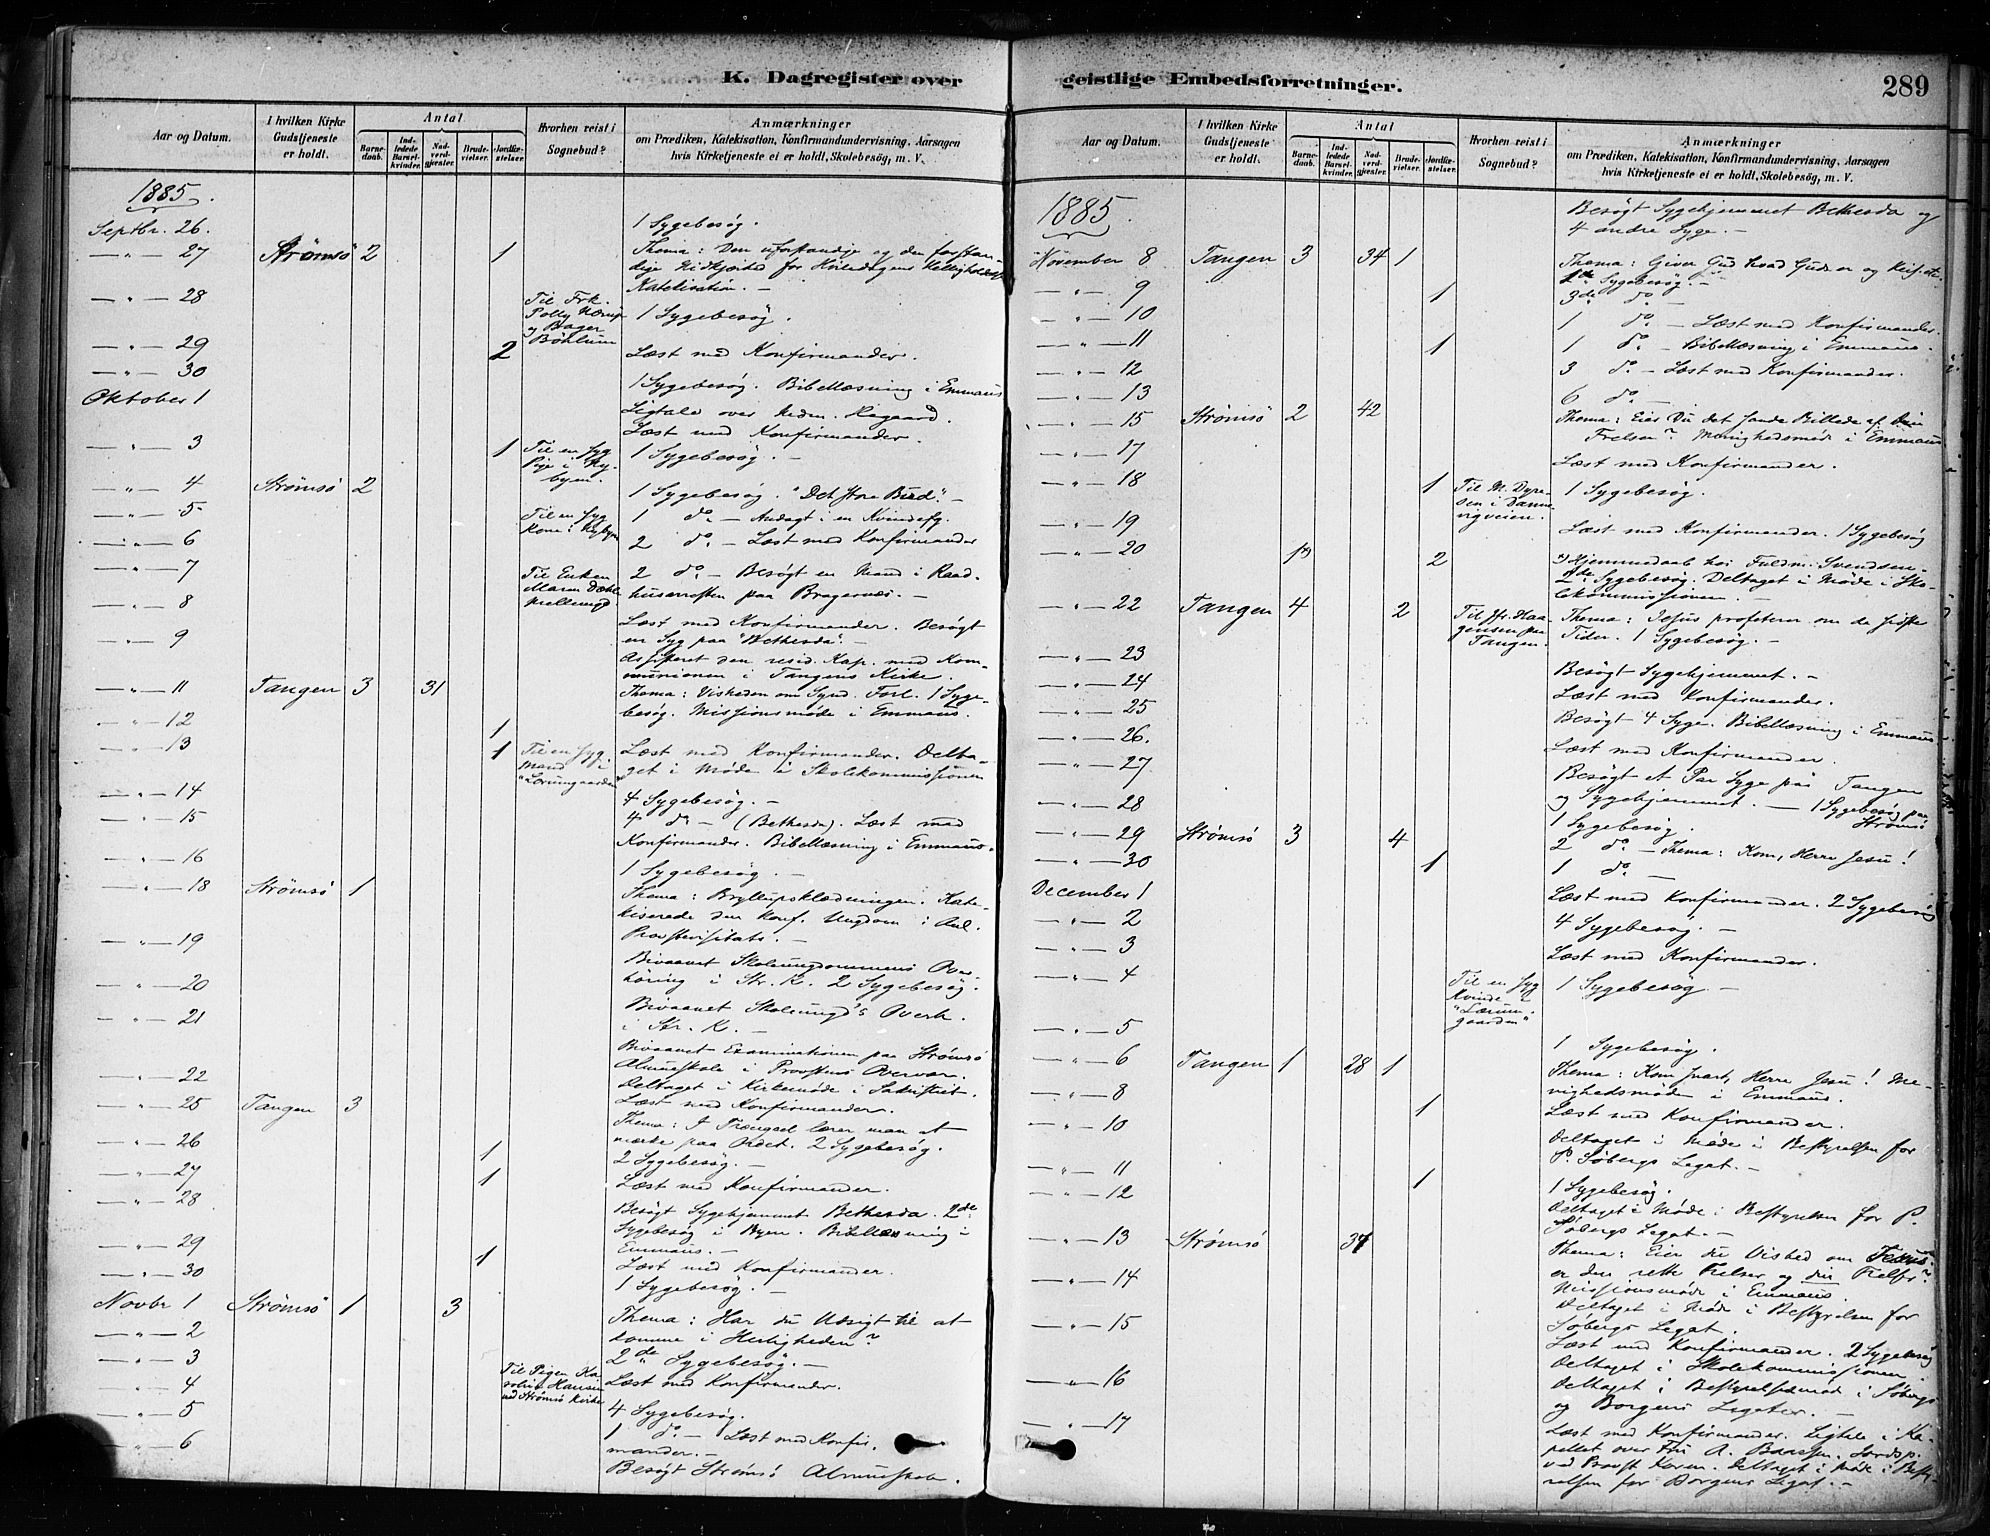 K. Dagregister over
Aar og Datum.
I hvilken Kirke Gudstjeneste er holdt.
Antal
Barnedaab.
Indledede Barselkvinder.
Nadverdgjester.
Brudevielser.
Jordfæstelser.
Hvorhen reist i Sognebud?
Anmærkninger
om Prædiken, Katekisation, Konfirmandundervisning, Aarsagen
hvis Kirketjeneste ei er holdt, Skolebesøg, m. V.
1885.
Septbr. 26. 1 Sygebesøg.
— " — 27 Strømsø 2 1 Thema: Den uforstandige og den forstan-
dige Nidkjærhed for Hviledagens Helligholdelse
Katekisation. —
— " — 28 Til Frk. Polly Nærup og Bager Bøhlum 1 Sygebesøg.
— " — 29 2 Læst med Konfirmander.
— " — 30 1 Sygebesøg. Bibellæsning i Emmaus
Oktober 1 Ligtale over Heden. Aagaard.
Læst med Konfirmander.
— " — 3 1 Til en syg Pige i Nybyen. 1 Sygebesøg. —
— " — 4 Strømsø 2 1 Sygebesøg. "Det store Bud". —
— " — 5 Til en syg Kone i Nybyen 1 do. — Andagt i en Kvindefg.
— " — 6 2 do. — Læst med Konfirmander
— " — 7 Til Enken Maren Dahl 2 do. — Besøgt en Mand i Raad-
husarresten paa Bragernæs. —
— " — 8 Læst med Konfirmander. Besøgt
— " — 9 en Syg paa "Bethesda". —
Assisteret den resid. Kap. med Kom-
munionen i Tangens Kirke.
— " — 11 Tangen 3 31 Thema: Visheden om Synd. Forl. 1 Syge-
besøg. Missionsmøde i Emmaus.
— " — 12 1
— " — 13 1 Til en syg Mand i Læst med Konfirmander. Delta-
get i Møde i Skolekommissionen
— " — 14 4 Sygebesøg. —
— " — 15 4 do — (Bethesda). Læst med
Konfirmander. Bibellæsning i Emmaus.
— " — 16 1 Sygebesøg. —
— " — 18 Strømsø 1 Thema: Bryllupsklædningen. Kate-
kiserede den konf. Ungdom i Anl.
— " — 19 Provstevisitats. —
Bivaanet Skoleungdommens Over-
— " — 20 høring i Str. K. 2 Sygebesøg.
— " — 21 Bivaanet Skoleungd's Overh.
i Str. K. —
Bivaanet Examinationen paa Strømsø
— " — 22 Almueskole i Provstens Overvær.
Deltaget i Kirkemøde i Sakristiet.
— " — 25 Tangen 3 Læst med Konfirmander.
Thema: I Trængsel lærer man at
— " — 26 1 mærke paa Ordet. 2 Sygebesøg.
— " — 27 1 2 Sygebesøg. —
— " — 28 Læst med Konfirmander.
Besøgt Sygehjemmet Bethesda. 2de
Sygebesøg i Byen. Bibellæsning i
— " — 29 1 Emmaus. —
— " — 30 Læst med Konfirmander.
1 Sygebesøg. —
Novbr 1 Strømsø 1 3 Thema: Har du Udsigt til at
— " — 2 komme i Herligheden?
— " — 3 2de Sygebesøg. —
— " — 4 Til Pigen Karoline Hansen ved Strømsø Kirke Læst med Konfirmander.
— " — 5 4 Sygebesøg.
— " — 6 1 do. — Læst med Konfir-
mander. —
Besøgt Strømsø Almueskole.
geistlige Embedsforretninger.
289
Aar og Datum.
I hvilken Kirke Gudstjeneste er holdt.
Antal
Barnedaab.
Indledede Barselkvinder.
Nadverdgjester.
Brudevielser.
Jordfæstelser.
Hvorhen reist i Sognebud?
Anmærkninger
om Prædiken, Katekisation, Konfirmandundervisning, Aarsagen
hvis Kirketjeneste ei er holdt, Skolebesøg, m. V.
1885. Besøgt Sygehjemmet Bethesda og
4 andre Syge. —
November 8 Tangen 3 34 1 Thema: Giver Gud hvad Guds er og
— " — 9 1 Sygebesøg. —
— " — 10 3de do. —
1 do. — Læst med Konfirmander.
— " — 11 1 1 do. — Bibellæsning i Emmaus.
— " — 12 3 do. — Læst med Konfirmander.
— " — 13 6 do. —
— " — 15 Strømsø 2 42 Thema: Eier Du det sande Billede af Din
Frelser? Menighedsmøde i Emmaus
— " — 17 Læst med Konfirmander.
— " — 18 1 Til M. Dyresen i Dannevigveien. 1 Sygebesøg.
— " — 19 Læst med Konfirmander. 1 Sygebesøg
— " — 20 1*) 2 *) Hjemmedaab hos Fuldm. Svendsen.
2de Sygebesøg. Deltaget i Møde i Sko-
lekommissionen. —
— " — 22 Tangen 4 2 Til Hr. Haagensen paa Tangen. Thema: Jesus profeterer om de sidste
Tider. 1 Sygebesøg. —
— " — 23 Besøgt Sygehjemmet. —
— " — 24 Læst med Konfirmander.
— " — 25 Besøgt 4 Syge. Bibellæsning i Emmaus
— " — 26. Læst med Konfirmander.
— " — 27 Besøgt et Par Syge paa Tangen
— " — 28 og Sygehjemmet. — 1 Sygebesøg paa Strømsø
— " — 29 Strømsø 3 4 1 Sygebesøg.
2 do. — Thema: Kom, Herre Jesu!
— " — 30 1 1 do. —
December 1 Læst med Konfirmander. 2 Sygebesøg
— " — 2 4 Sygebesøg. —
— " — 3 Læst med Konfirmander.
— " — 4 Til en syg Kvinde i "Lærumgaarden" 1 Sygebesøg —
— " — 5 1 Sygebesøg.
— " — 6 Tangen 1 28 1 Thema: Kom snart, Herre Jesu! Me-
nighedsmøde i Emmaus.
— " — 8 1 Læst med Konfirmander.
— " — 10 Deltaget i Møde i Bestyrelsen for
— " — 11 P. Søbergs Legat. —
— " — 12 1 1 Sygebesøg.
Deltaget i Møde i Bestyrelsen for P.
Søbergs Legat. —
— " — 13 Strømsø 37 Thema: Eier du Vished om at Jesus
er den rette Frelser og din Frelser?
— " — 14 Missionsmøde i Emmaus.
Deltaget i Møde i Bestyrelsen for
— " — 15 Søbergs Legat.
Læst med Konfirmander. 2 Sygebesøg
Deltaget i Skolekommissionen.
— " — 16 Deltaget i Bestyrelsesmøde i Søbergs
og Borgens Legater. —
— " — 17 Læst med Konfirmander. Ligtale i Ka-
pellet over Fru A. Jordsp.
ved Provst Koren. Deltaget i Møde i Besty-
relsen for Borgens Legat. —